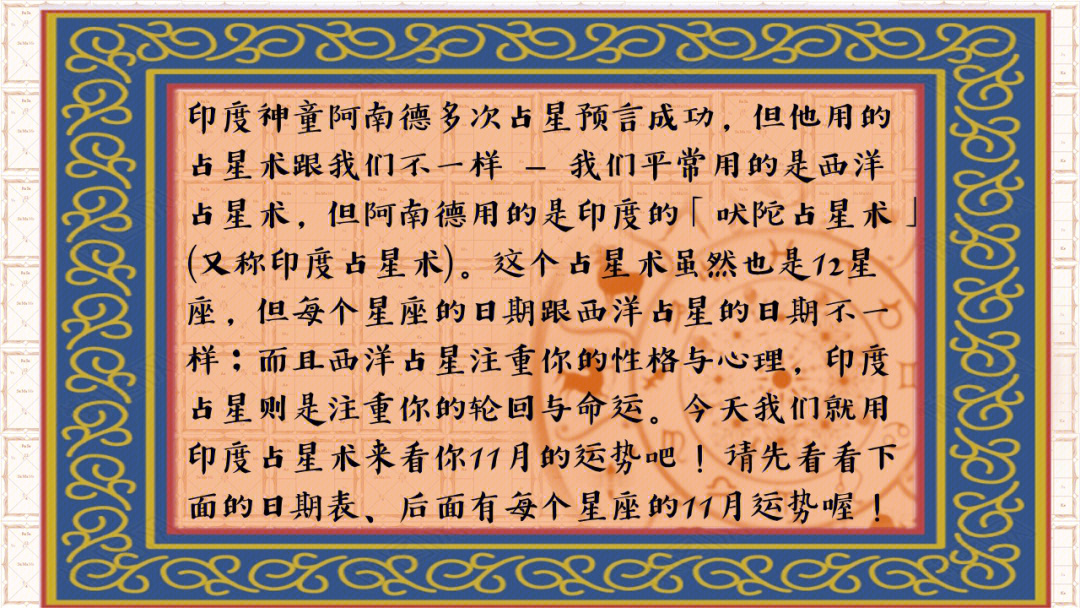 印度神童阿南德多次占星预言成功，但他用的
占星术跟我们不一样 – 我们平常用的是西洋
占星术，但阿南德用的是印度的「吠陀占星术」
(又称印度占星术)。这个占星术虽然也是12星
座，但每个星座的日期跟西洋占星的日期不一
样；而且西洋占星注重你的性格与心理，印度
占星则是注重你的轮回与命运。今天我们就用
印度占星术来看你11月的运势吧！请先看看下
面的日期表、后面有每个星座的11月运势喔！